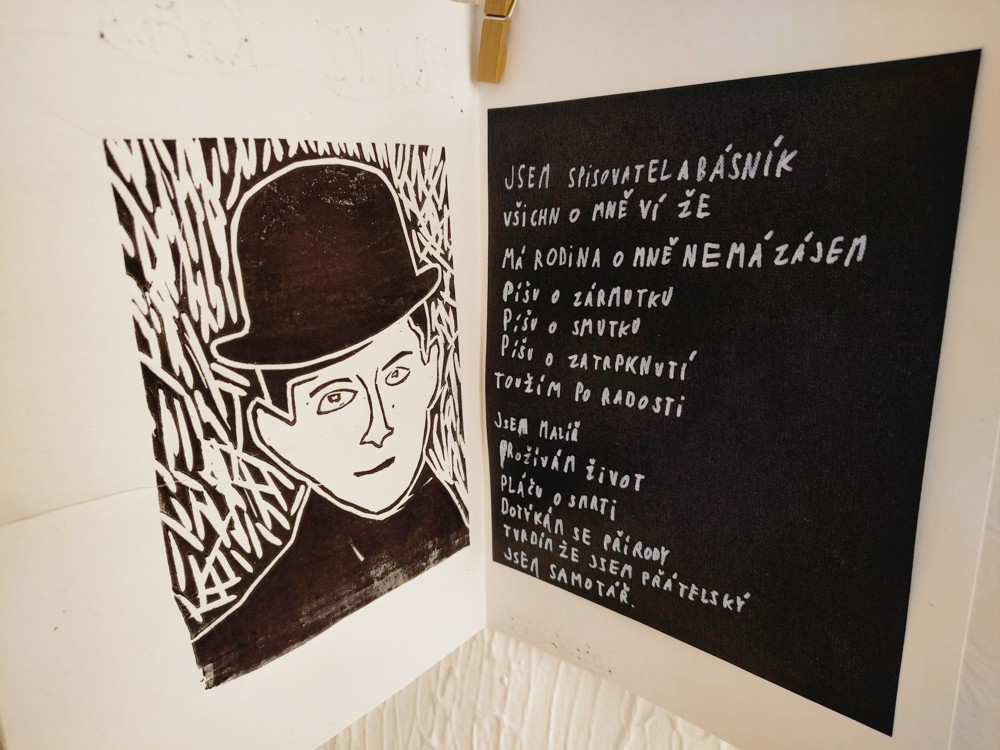 JSEM SPISOVATEL A BÁSNÍK
VŠICHN O MNĚ VÍ ŽE
MÁ RODINA O MNĚ NEMÁ ZÁJEM
PÍŠU O ZÁRMUTKU
PÍŠU O SMUTKU
PÍŠU O ZATRPKNUTÍ
TOUŽÍM PO RADOSTI
JSEM MALÍŘ
PROŽÍVÁM ŽIVOT
PLÁČU O SMRTI
DOTÝKÁM SE PŘÍRODY
TVRDÍM ŽE JSEM PŘÁTELSKÝ
JSEM SAMOTÁŘ.